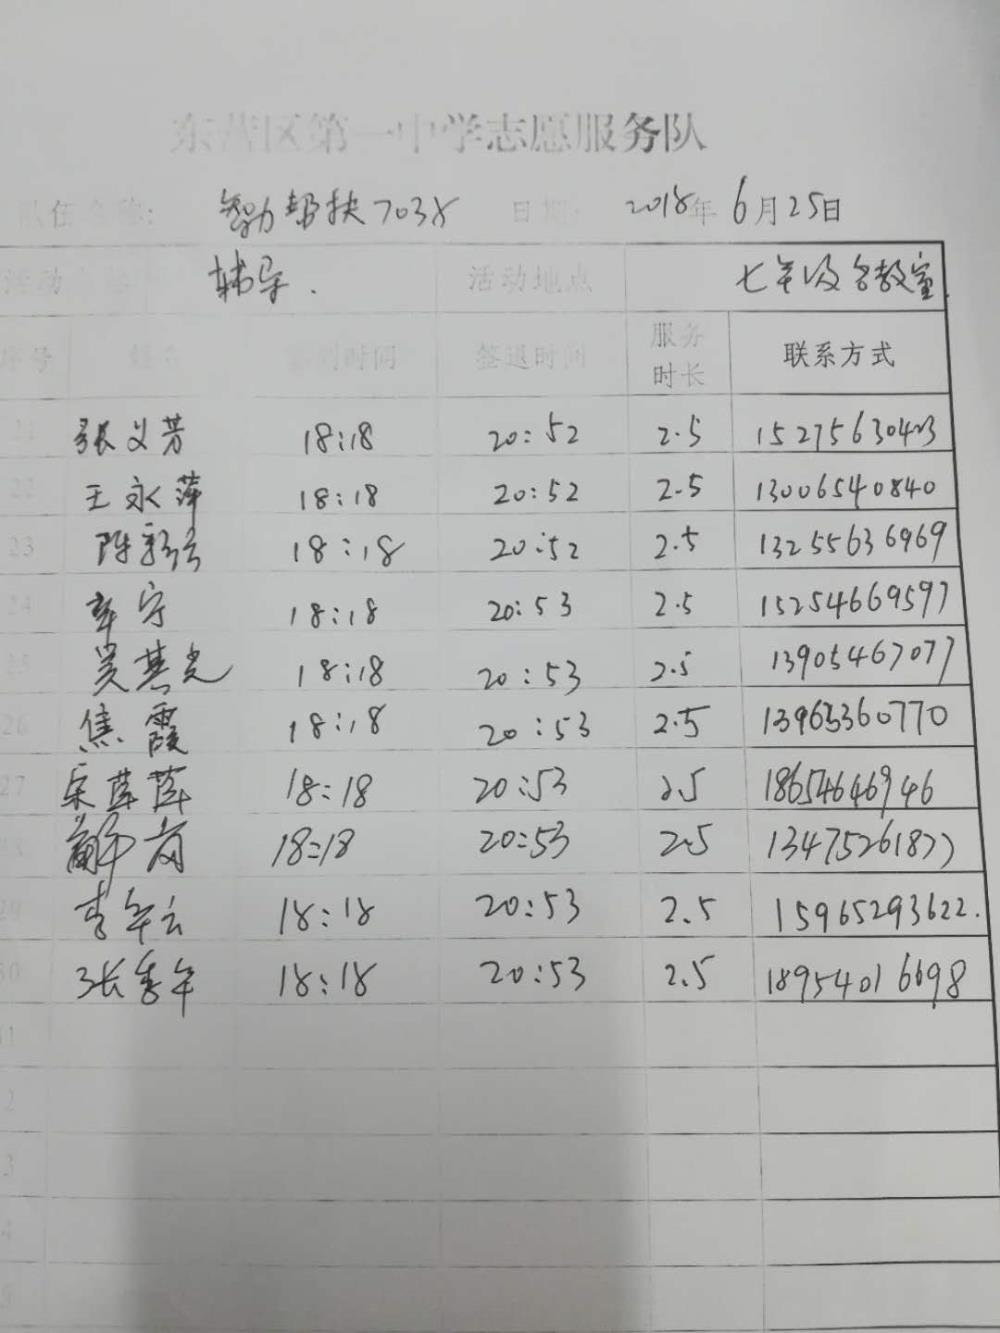 东营区第一中学志愿服务队
队伍名称: 智力帮扶703X 日期: 2018年6月25日
活动 辅导. 活动地点 七年级各教室
序号 姓名 签到时间 签退时间 服务时长 联系方式
21 张义芳 18:18 20:52 2.5
22 王永萍 18:18 20:52 2.5 13006540840
23 陈 18:18 20:52 2.5 13255636969
24 18:18 20:53 2.5 15254669597
25 吴其光 18:18 20:53 2.5 13905467077
26 焦霞 18:18 20:53 2.5 13965360770
27 宋莲莲 18:18 20:53 2.5 18654646946
28 解芳 18:18 20:53 2.5 13475261877
29 李年云 18:18 20:53 2.5 15965293622.
30 张秀年 18:18 20:53 2.5 18954016698